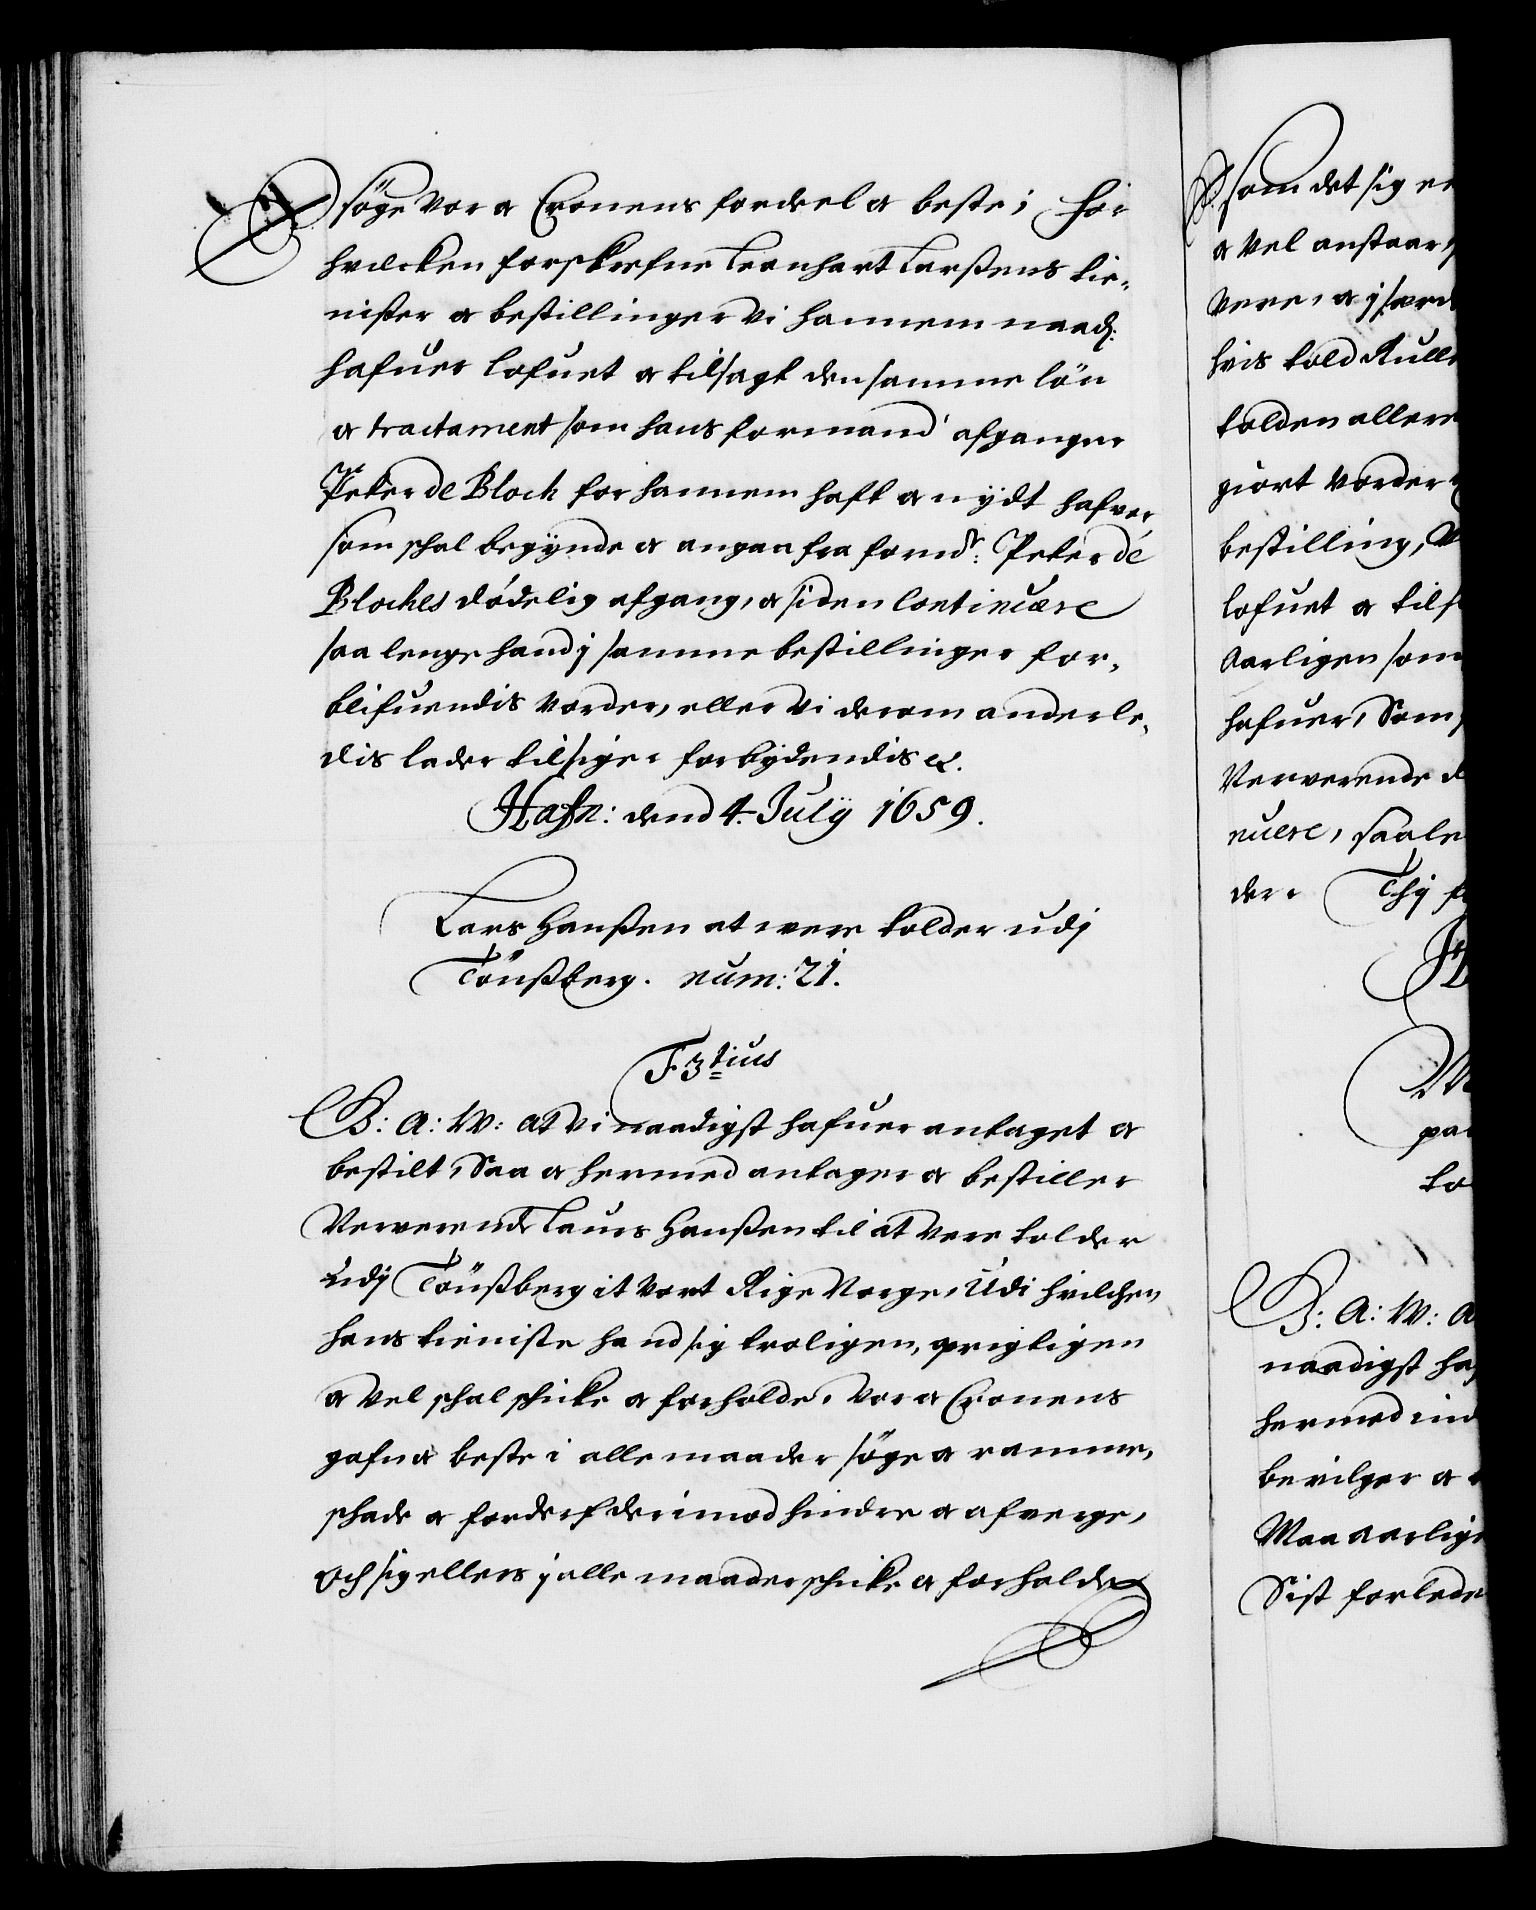 søge vor oc Cronens fordeel oc beste; For
hvilcken forskrefne Leonhart Larßens tie-
nister oc bestillinger vi hannem naad:
hafuer lofuet oc tilsagt den samme løn
oc tractament som hans formand afgangne
Peter de Block for hannem haft oc nydt hafver,
som schal begynde oc angaa fra formdr: Peter de
Blockes dødelig afgang, oc siden Continuere
saa lenge hand j samme bestillinger for-
blifuendis vorder, eller vi derom anderle-
dis lader tilsige: forbydendis &.
Hafn: dend 4. July 1659.
Lars Hanßen at were tolder udj
Tönßberg. num: 21.
F. 3tius
G: A: W: at vi naadigst hafuer antaget oc
bestilt, Saa oc hermed antager oc bestiller
Nerverende Laurs Hanßen til at vere tolder
udj Tönßberg it vort Rige Norge, Udi hvilchen
hans tieniste hand sig troligen, oprigtigen
oc vel schal schicke oc forholde, vor oc Cronens
gafn oc beste i alle maader søge oc ramme,
schade oc forderf derimod hindre oc afverge,
Och sig ellers j alle maader schicke oc forholde
som det sig
oc vel anstaar,
vere, oc j
hvis told Rulle
tolden allere
giort vorder
bestilling,
lofuet oc tils
Aarligen som
hafuer, Som
Nerverende
nuere, saa le
der. Thj
to
G: A: W: A
naadigst ha
hermed
bevilger oc
Maa aarlige
Sist forlede